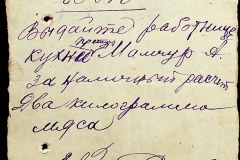 Выдайте работнице
кухни Мамчур А.
за наличный расчет
Два килограмма
мяса